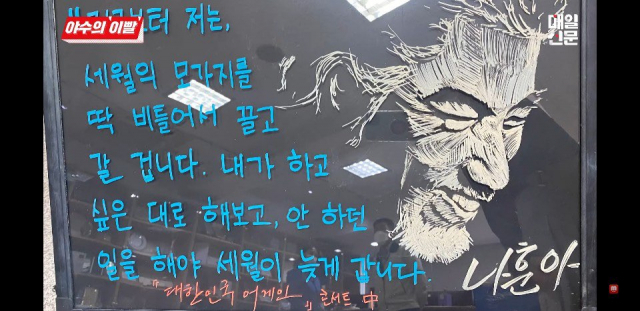 야수의 이빨
매일
신문
저는,
세월의 모가지를
딱 비틀어서 끌고
갈 겁니다. 내가 하고
싶은 대로 해보고, 안 하던
일을 해야 세월이 늦게 갑니다.
"대한민국 어게인" 콘서트 中
나훈아